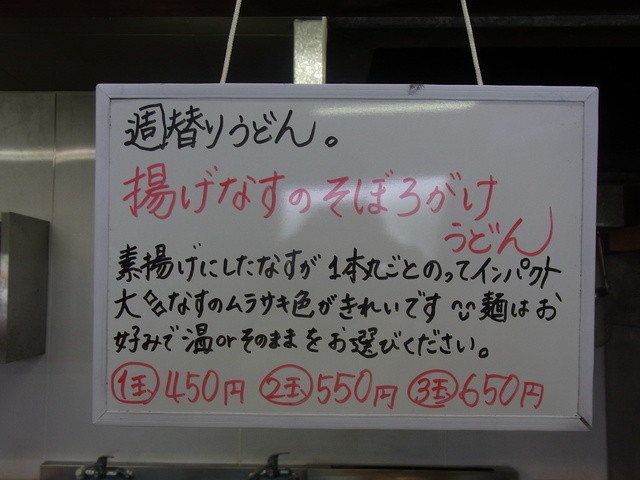 週替りうどん。
揚げなすのそぼろがけ
うどん
素揚げにしたなすが1本丸ごとのってインパクト
大なすのムラサキ色がきれいです麺はお
好みで温orそのままをお選びください。
1玉450円 2玉550円 3玉650円